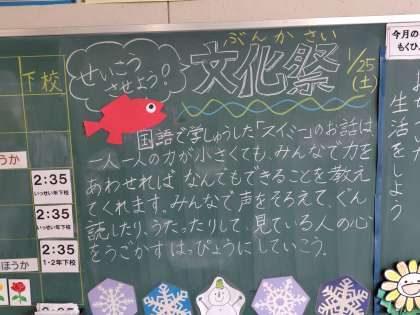 今月の
もくひょ
ぶんかさい
文化祭
1/25
(土)
せいこう
させよう!
国語で学しゅうした「スイミー」のお話は
一人一人の力が小さくても、みんなで力を
あわせれば なんでもできることを教え
てくれます。みんなで声をそろえて ぐん
読したり、うたったりして、見ている人の心
をうごかす はっぴょうに していこう。
下校
うか
2:35
いっせい下校
2:35
いっせい下校
2:35
1・2年下校
ほうか
生活をしよう